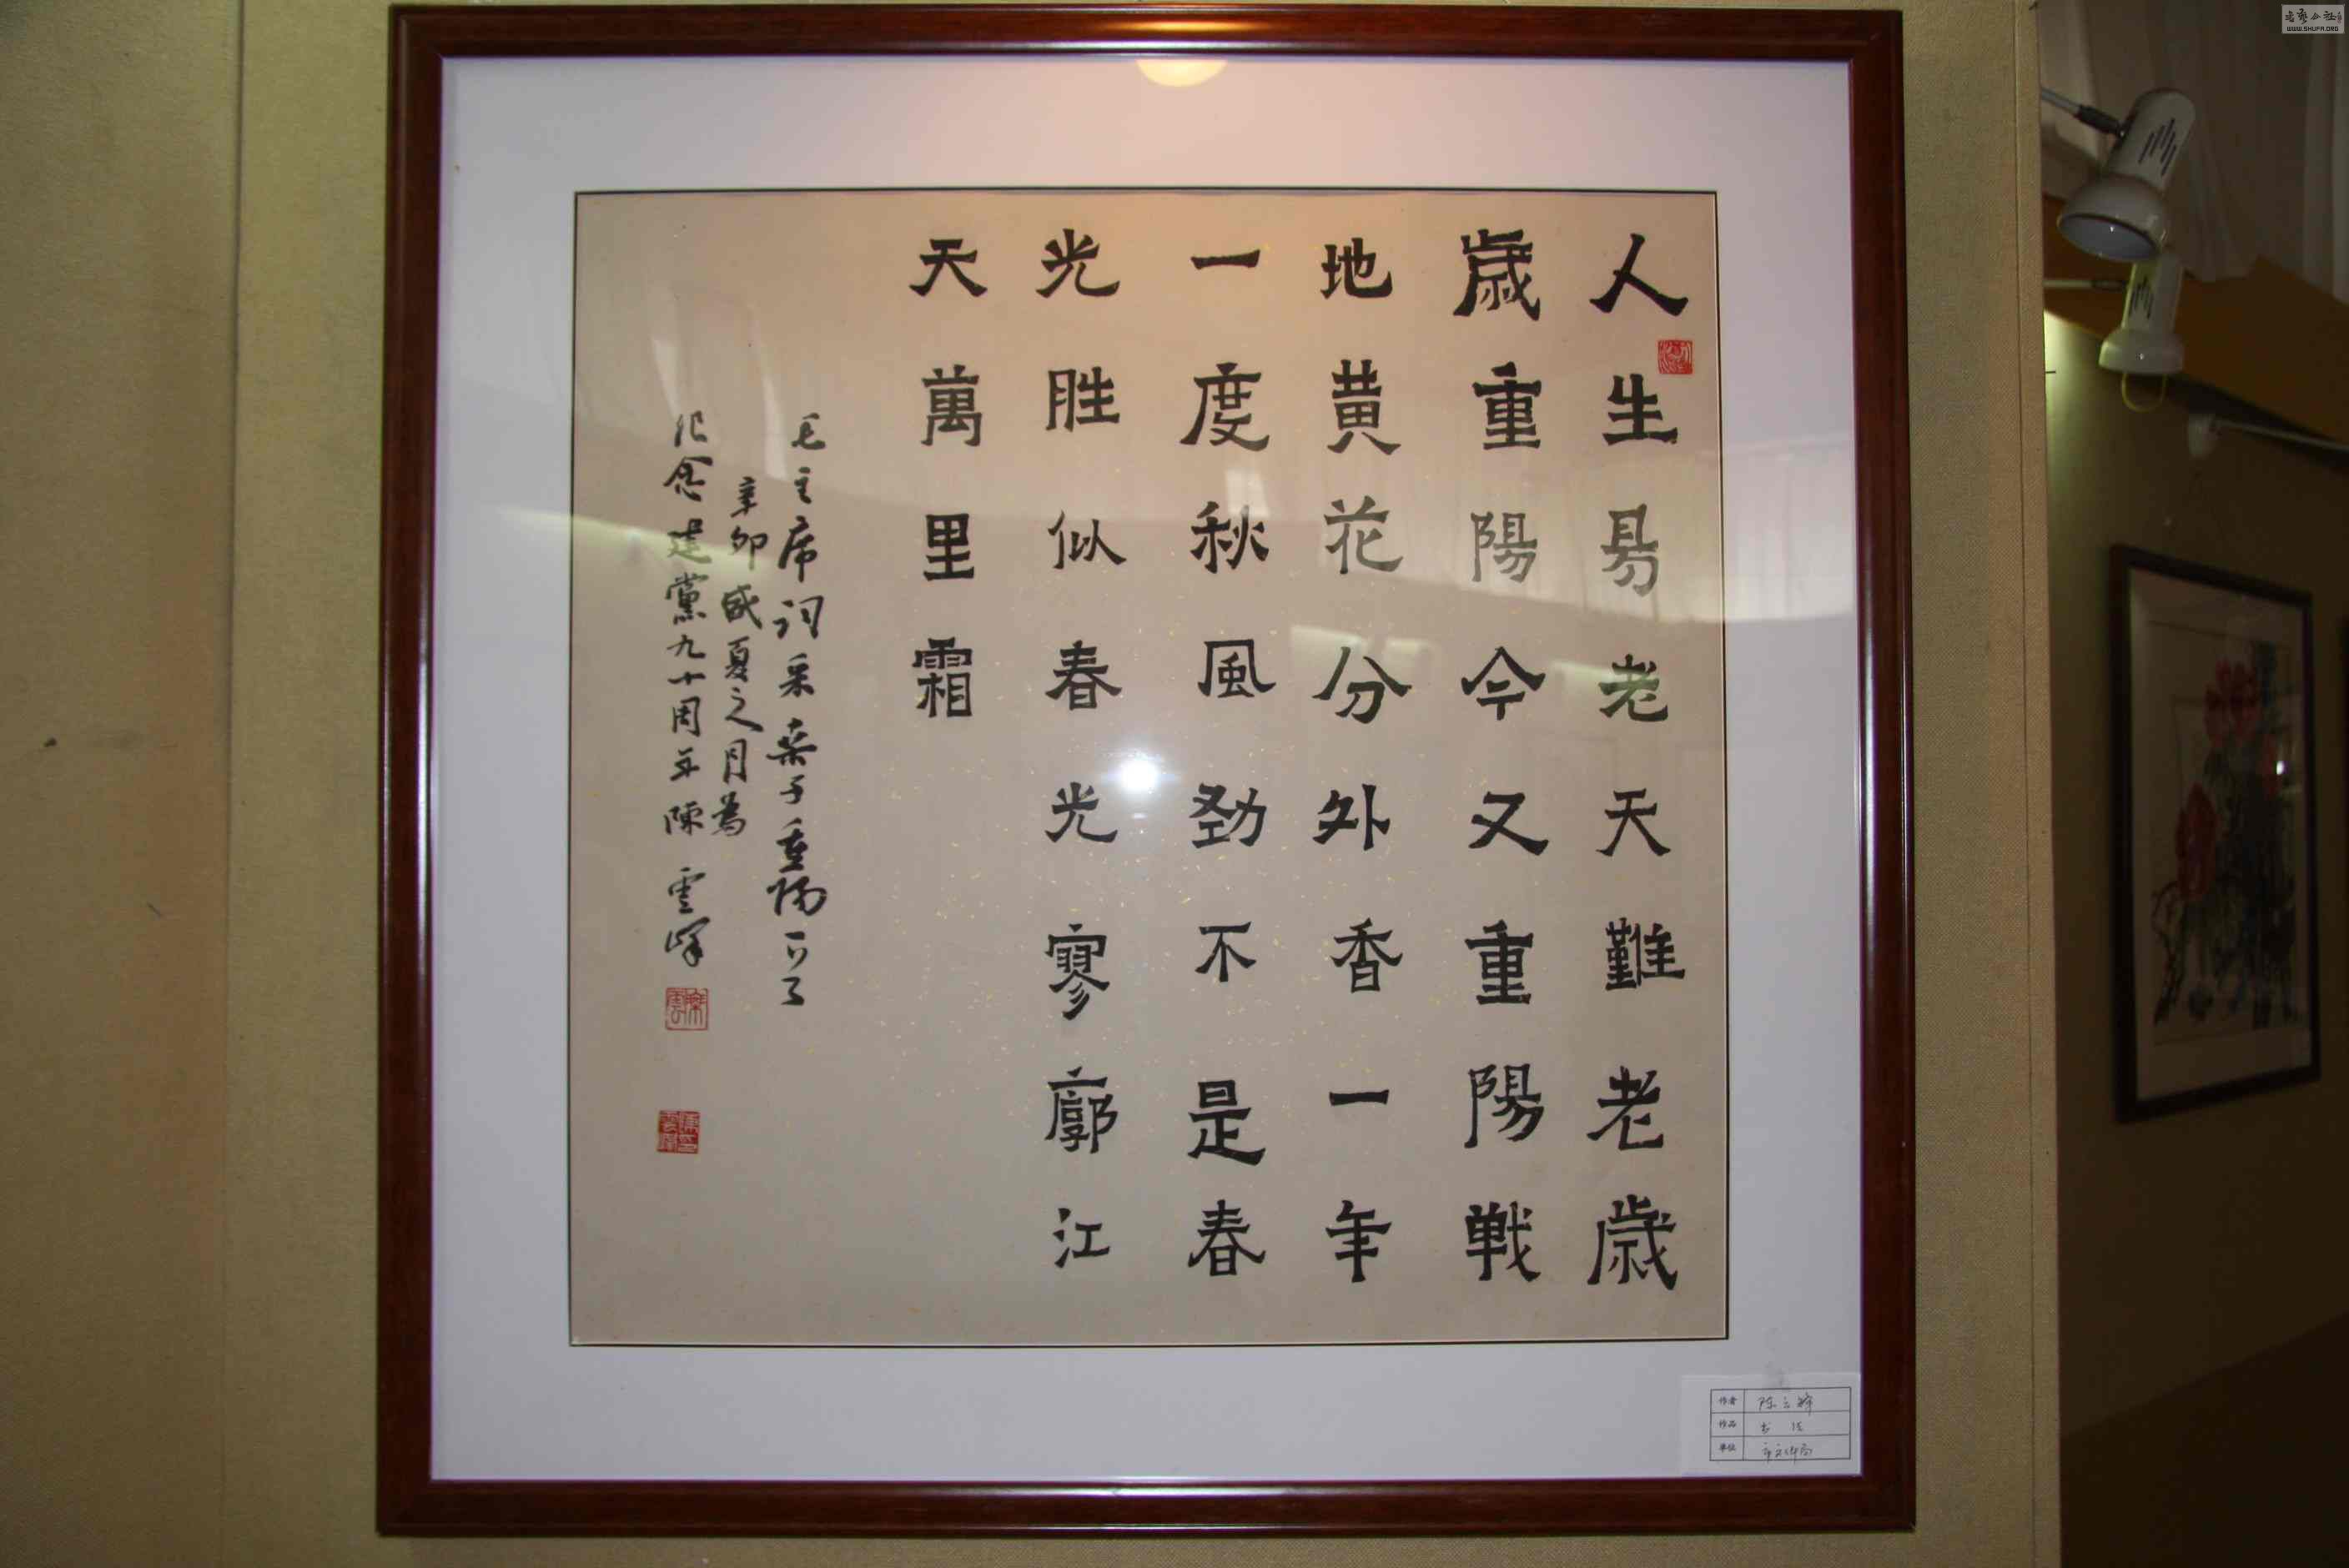 人生易老天難老歲
歲重陽今又重陽戰
地黄花分外香一年
一度秋風勁不是春
光胜似春光寥廓江
天萬里霜
毛主席词采桑子重陽一首
辛卯盛夏之月為
纪念建黨九十周年陳雲峰
作者 陈云峰
作品 书法
单位
WWW.SHUFA.ORG